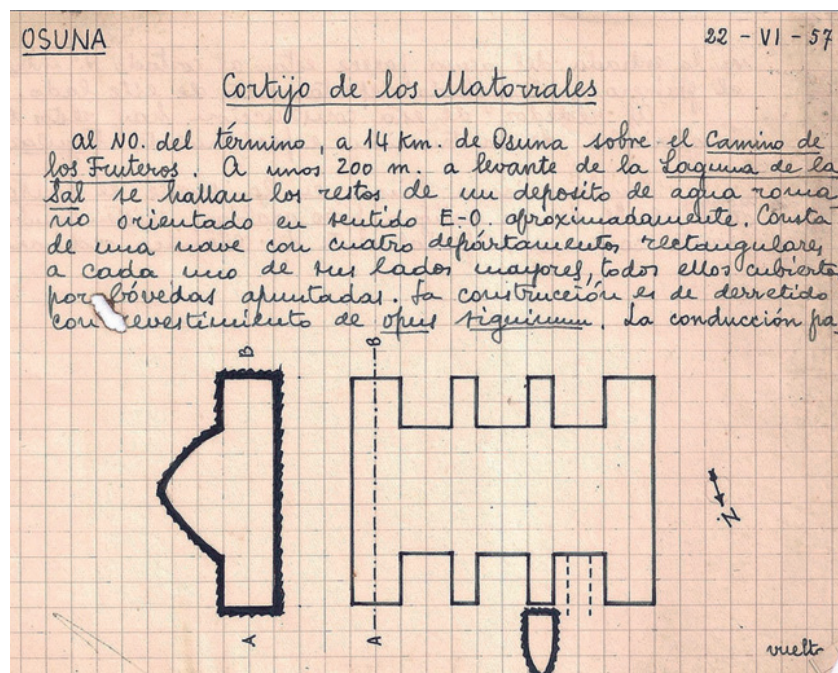 OSUNA
22 - VI - 57
Cortijo de los Matorrales
al NO. del término, a 14 Km. de Osuna sobre el Camino de
los Fruteros. A unos 200 m. a levante de la Laguna de la
Sal se hallan los restos de un deposito de agua roma
no orientado en sentido E-O. aproximadamente. Consta
de una nave con cuatro departamentos rectangulares
a cada uno de sus lados mayores, todos ellos cubierta
por bóvedas apuntadas. La construcción es de derretido
con revestimiento de opus signinum. La conducción pa
B
B
N
A
A
vuelto